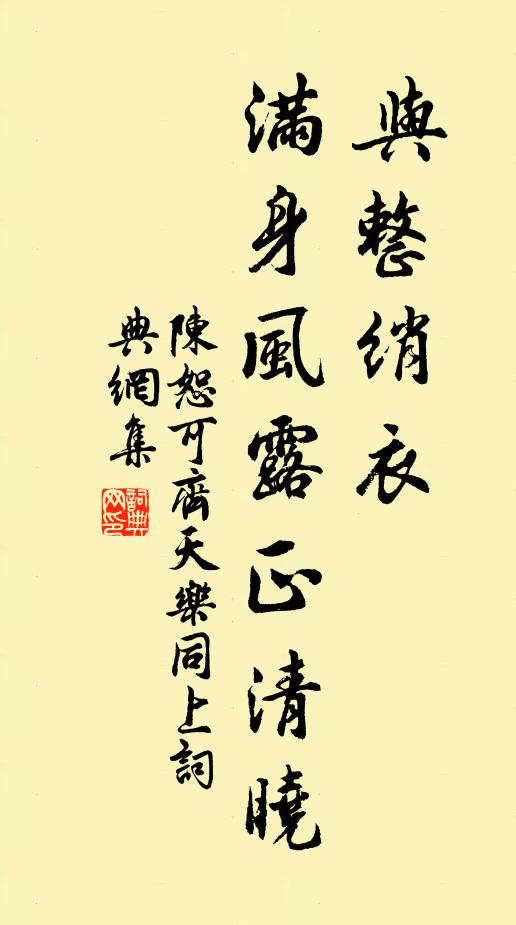 與整綃衣
滿身風露正清曉
陳恕可齊天樂同上詞
典網集
詞典網印